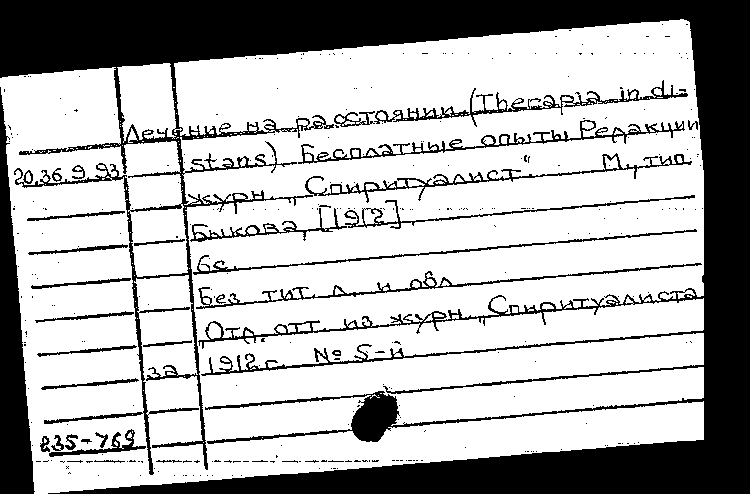 Лечение на расстоянии (Therapia in di=
20.36.9.93 stans). Бесплатные опыты Редакции
журн. „Спиритуалист". М., тип.
Быкова, [1912].
6с.
Без тит. л. и обл.
Отд. отт. из журн. „Спиритуалиста
за 1912г. № 5-й
235-769